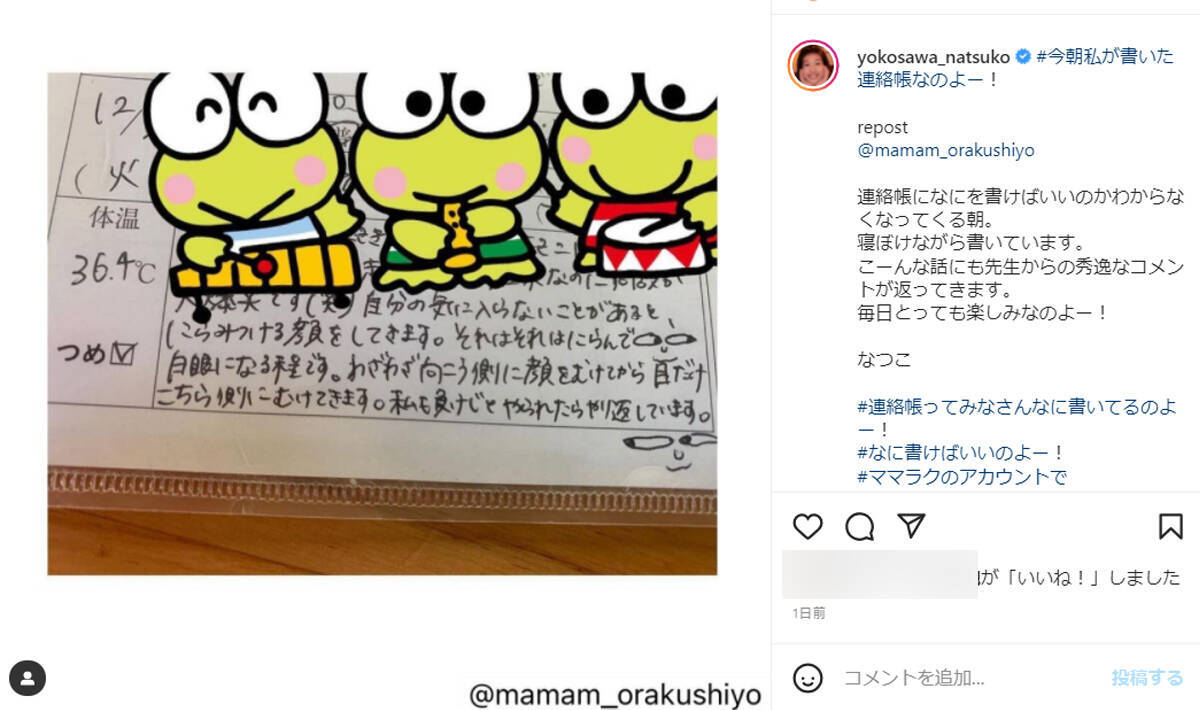 12/
(火
体温
36.4℃
つめ☑
です(笑)自分の気に入らないことがあると
にらみつける顔をしてきます。それはそれはにらんで
白眼になる程です。わざわざ向こう側に顔をむけてから目だけ
こちら側にむけてきます。私も負けじとやられたらやり返しています。
@mamam_orakushiyo
yokosawa_natsuko #今朝私が書いた
連絡帳なのよー！
repost
@mamam_orakushiyo
連絡帳になにを書けばいいのかわからな
くなってくる朝。
寝ぼけながら書いています。
こーんな話にも先生からの秀逸なコメン
トが返ってきます。
毎日とっても楽しみなのよー！
なつこ
#連絡帳ってみなさんなに書いてるのよ
ー！
#なに書けばいいのよー！
#ママラクのアカウントで
が「いいね！」しました
1日前
コメントを追加...
投稿する